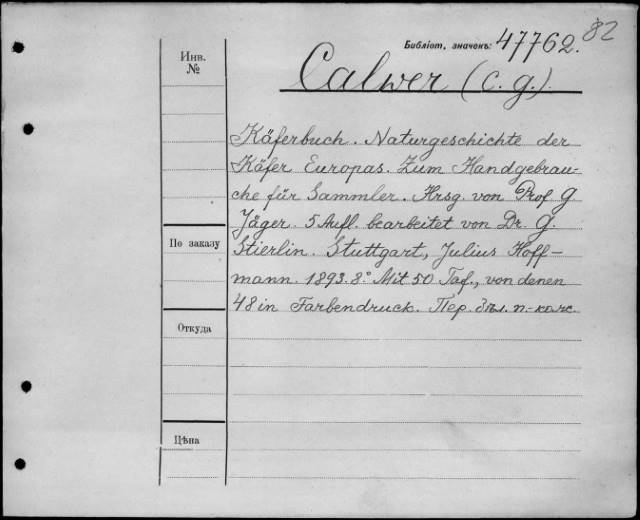 82
Библіот. значекъ: 47762.
Инв.
№
Calwer (C. G.).
Käferbuch. Naturgeschichte der
Käfer Europas. Zum Handgebrau-
che für Sammler. Hrsg. von Prof G.
Jäger. 5 Aufl. bearbeitet von Dr. G.
По заказу
Stierlin. Stuttgart, Julius Hoff-
mann. 1893. 8° Mit 50 Taf., von denen
48 in Farbendruck. Пер. п.-кожс.
Откуда
Цѣна